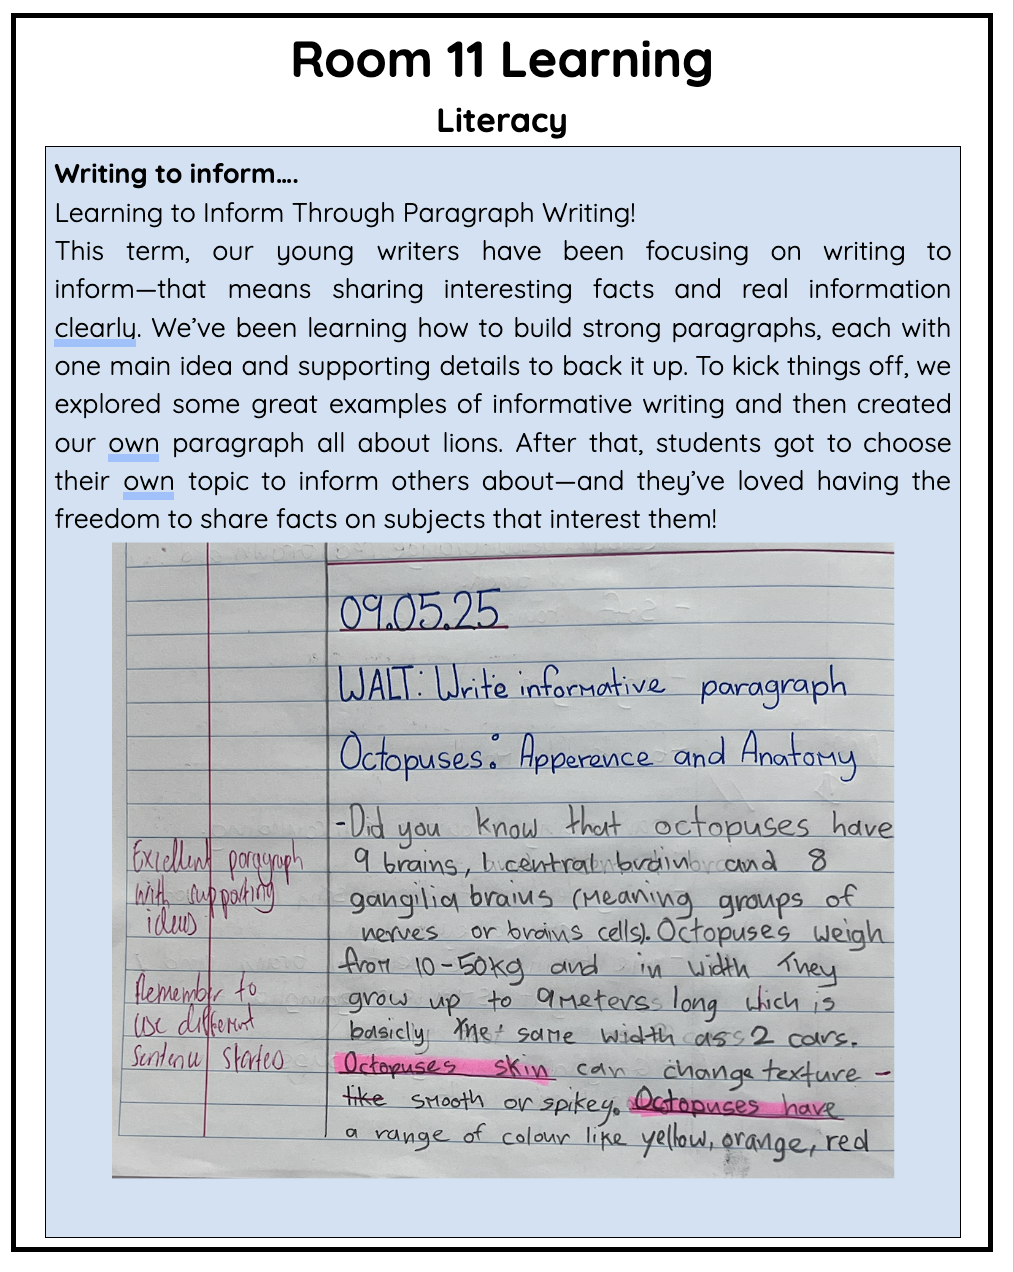 Room 11 Learning
Literacy
Writing to inform….
Learning to Inform Through Paragraph Writing!
This term, our young writers have been focusing on writing to
inform—that means sharing interesting facts and real information
clearly. We’ve been learning how to build strong paragraphs, each with
one main idea and supporting details to back it up. To kick things off, we
explored some great examples of informative writing and then created
our own paragraph all about lions. After that, students got to choose
their own topic to inform others about—and they’ve loved having the
freedom to share facts on subjects that interest them!
09.05.25
WALT: Write informative paragraph
Octopuses: Apperence and Anatomy
-Did you know that octopuses have
9 brains, central and 8
gangilia brains (meaning groups of
nerves or brains cells). Octopuses weigh
from 10-50kg and in width They
grow up to 9meters long which is
basicly the same width as 2 cars.
Octopuses skin can change texture -
like smooth or spikey. Octopuses have
a range of colour like yellow, orange, red
Excellent paragraph
with supporting
ideas
Remember to
use different
sentence